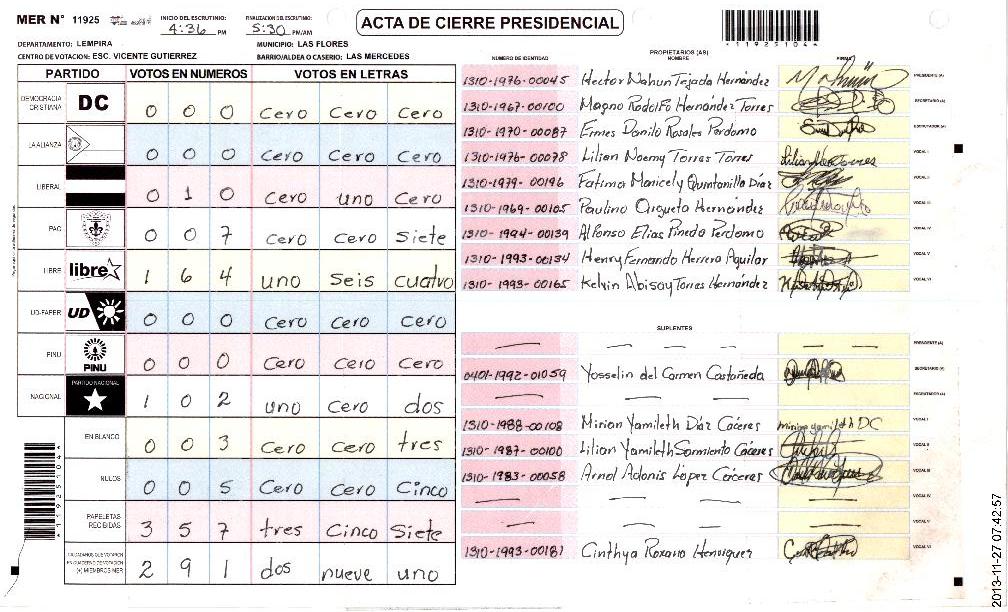 MER N° 11925
INICIO DEL ESCRUTINIO: 4:36 PM
FINALIZACION DEL ESCRUTINIO: 5:30 PM/AM
ACTA DE CIERRE PRESIDENCIAL
*119251044*
DEPARTAMENTO: LEMPIRA
MUNICIPIO: LAS FLORES
CENTRO DE VOTACION: ESC. VICENTE GUTIERREZ
BARRIO/ALDEA O CASERIO: LAS MERCEDES
PARTIDO VOTOS EN NUMEROS VOTOS EN LETRAS
DEMOCRACIA CRISTIANA DC 0 0 0 Cero Cero Cero
LA ALIANZA 0 0 0 Cero Cero Cero
LIBERAL 0 1 0 Cero uno Cero
PAC 0 0 7 Cero Cero Siete
LIBRE libre 1 6 4 uno Seis cuatro
UD-FAPER UD 0 0 0 Cero Cero Cero
PINU PINU 0 0 0 Cero Cero Cero
NACIONAL PARTIDO NACIONAL 1 0 2 uno Cero dos
EN BLANCO 0 0 3 Cero Cero tres
NULOS 0 0 5 Cero Cero Cinco
PAPELETAS RECIBIDAS 3 5 7 tres Cinco Siete
CIUDADANOS QUE VOTARON EN CUADERNO DE VOTACION (+) MIEMBROS MER 2 9 1 dos nueve uno
PROPIETARIOS (AS)
NUMERO DE IDENTIDAD NOMBRE FIRMA
1310-1976-00045 Hector Nahun Tejada Hernández PRESIDENTE (A)
1310-1967-00100 Magno Rodolfo Hernández Torres SECRETARIO (A)
1310-1970-00087 Ermes Danilo Rosales Perdomo ESCRUTADOR (A)
1310-1976-00078 Lilian Noemy Torres Torres VOCAL I
1310-1979-00196 Fatima Maricely Quintanilla Díaz VOCAL II
1310-1969-00105 Paulino Orgueta Hernández VOCAL III
1310-1994-00139 Alfonso Elias Pineda Perdomo VOCAL IV
1310-1993-00134 Henry Fernando Herrera Aguilar VOCAL V
1310-1993-00165 Kelvin Abisay Torres Hernández VOCAL VI
SUPLENTES
PRESIDENTE (A)
0401-1992-01059 Yosselin del Carmen Castañeda SECRETARIO (A)
ESCRUTADOR (A)
1310-1988-00108 Mirian Yamileth Díaz Cáceres VOCAL I
1310-1987-00100 Lilian Yamileth Sarmiento Cáceres VOCAL II
1310-1983-00058 Arnol Adonis López Cáceres VOCAL III
VOCAL IV
VOCAL V
1310-1993-00181 Cinthya Roxana Henriquez VOCAL VI
*119251044*
2013-11-27 07:42:57